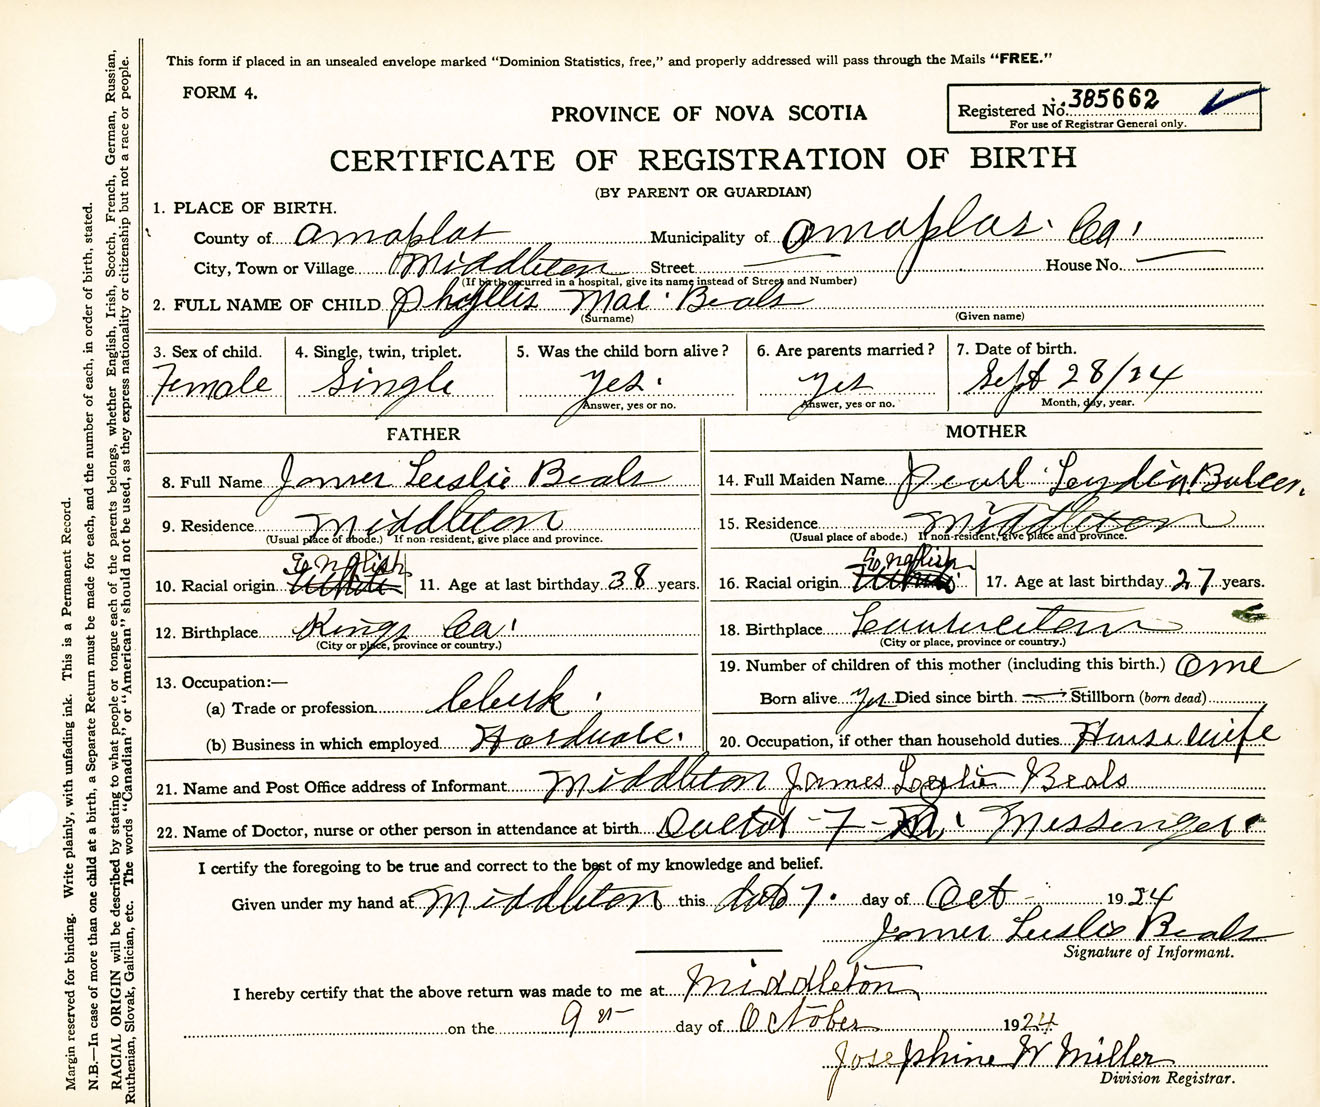 This form if placed in an unsealed envelope marked "Dominion Statistics, free," and properly addressed will pass through the Mails "FREE."
FORM 4.
PROVINCE OF NOVA SCOTIA
Registered No. 385662
For use of Registrar General only.
CERTIFICATE OF REGISTRATION OF BIRTH
(BY PARENT OR GUARDIAN)
1. PLACE OF BIRTH.
County of Annaplas Municipality of Annaplas. Co.
City, Town or Village Middleton Street House No.
(If birth occurred in a hospital, give its name instead of Street and Number)
2. FULL NAME OF CHILD Phyllis Mae Beals
(Surname) (Given name)
3. Sex of child. 4. Single, twin, triplet. 5. Was the child born alive? 6. Are parents married? 7. Date of birth.
Female Single yes. yes Sept 28/24
Answer, yes or no. Answer, yes or no. Month, day, year.
FATHER MOTHER
8. Full Name James Leslie Beals 14. Full Maiden Name Pearl
9. Residence Middleton 15. Residence Middleton
(Usual place of abode.) If non-resident, give place and province. (Usual place of abode.) If non-resident, give place and province.
English English
10. Racial origin 11. Age at last birthday 38 years. 16. Racial origin 17. Age at last birthday 27 years.
12. Birthplace Kings Co. 18. Birthplace
(City or place, province or country.) (City or place, province or country.)
13. Occupation:— 19. Number of children of this mother (including this birth.) One
(a) Trade or profession Clerk. Born alive yes Died since birth. — Stillborn (born dead)
(b) Business in which employed Hardware. 20. Occupation, if other than household duties. Housewife
21. Name and Post Office address of Informant Middleton James Leslie Beals
22. Name of Doctor, nurse or other person in attendance at birth Doctor F-M. Messenger.
I certify the foregoing to be true and correct to the best of my knowledge and belief.
Given under my hand at Middleton this date 7. day of Oct 1924
James Leslie Beals
Signature of Informant.
I hereby certify that the above return was made to me at Middleton
on the 9 day of October 1924
Josephine W Miller
Division Registrar.
Margin reserved for binding. Write plainly, with unfading ink. This is a Permanent Record.
N.B.—In case of more than one child at a birth, a Separate Return must be made for each, and the number of each, in order of birth, stated.
RACIAL ORIGIN will be described by stating to what people or tongue each of the parents belongs, whether English, Irish, Scotch, French, German, Russian,
Ruthenian, Slovak, Galician, etc. The words "Canadian" or "American" should not be used, as they express nationality or citizenship but not a race or people.